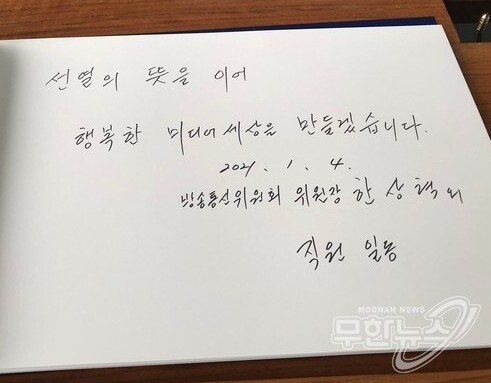 선열의 뜻을 이어
행복한 미디어세상을 만들겠습니다.
2021. 1. 4.
방송통신위원회 위원장 한상혁 외
직원 일동
MOOHAN NEWS
무한뉴스